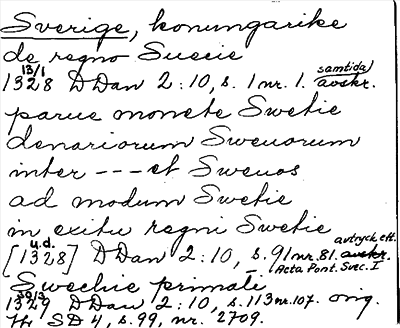 Sverige, konungarike
de regno Suecie
13/1 samtida
1328 DDan 2:10, s. 1 nr. 1. avskr.
parue monete Swetie
denariorum Sweuorum
inter --- et Sweuos
ad modum Swetie
in exitu regni Swetie
u.d. avtryck eft.
[1328] DDan 2:10, s. 91 nr. 81. avskr.
Acta Pont. Svec. I
Swechie primati
1329 DDan 2:10, s. 113 nr. 107. orig.
Tr SD 4, s. 99, nr. 2709.